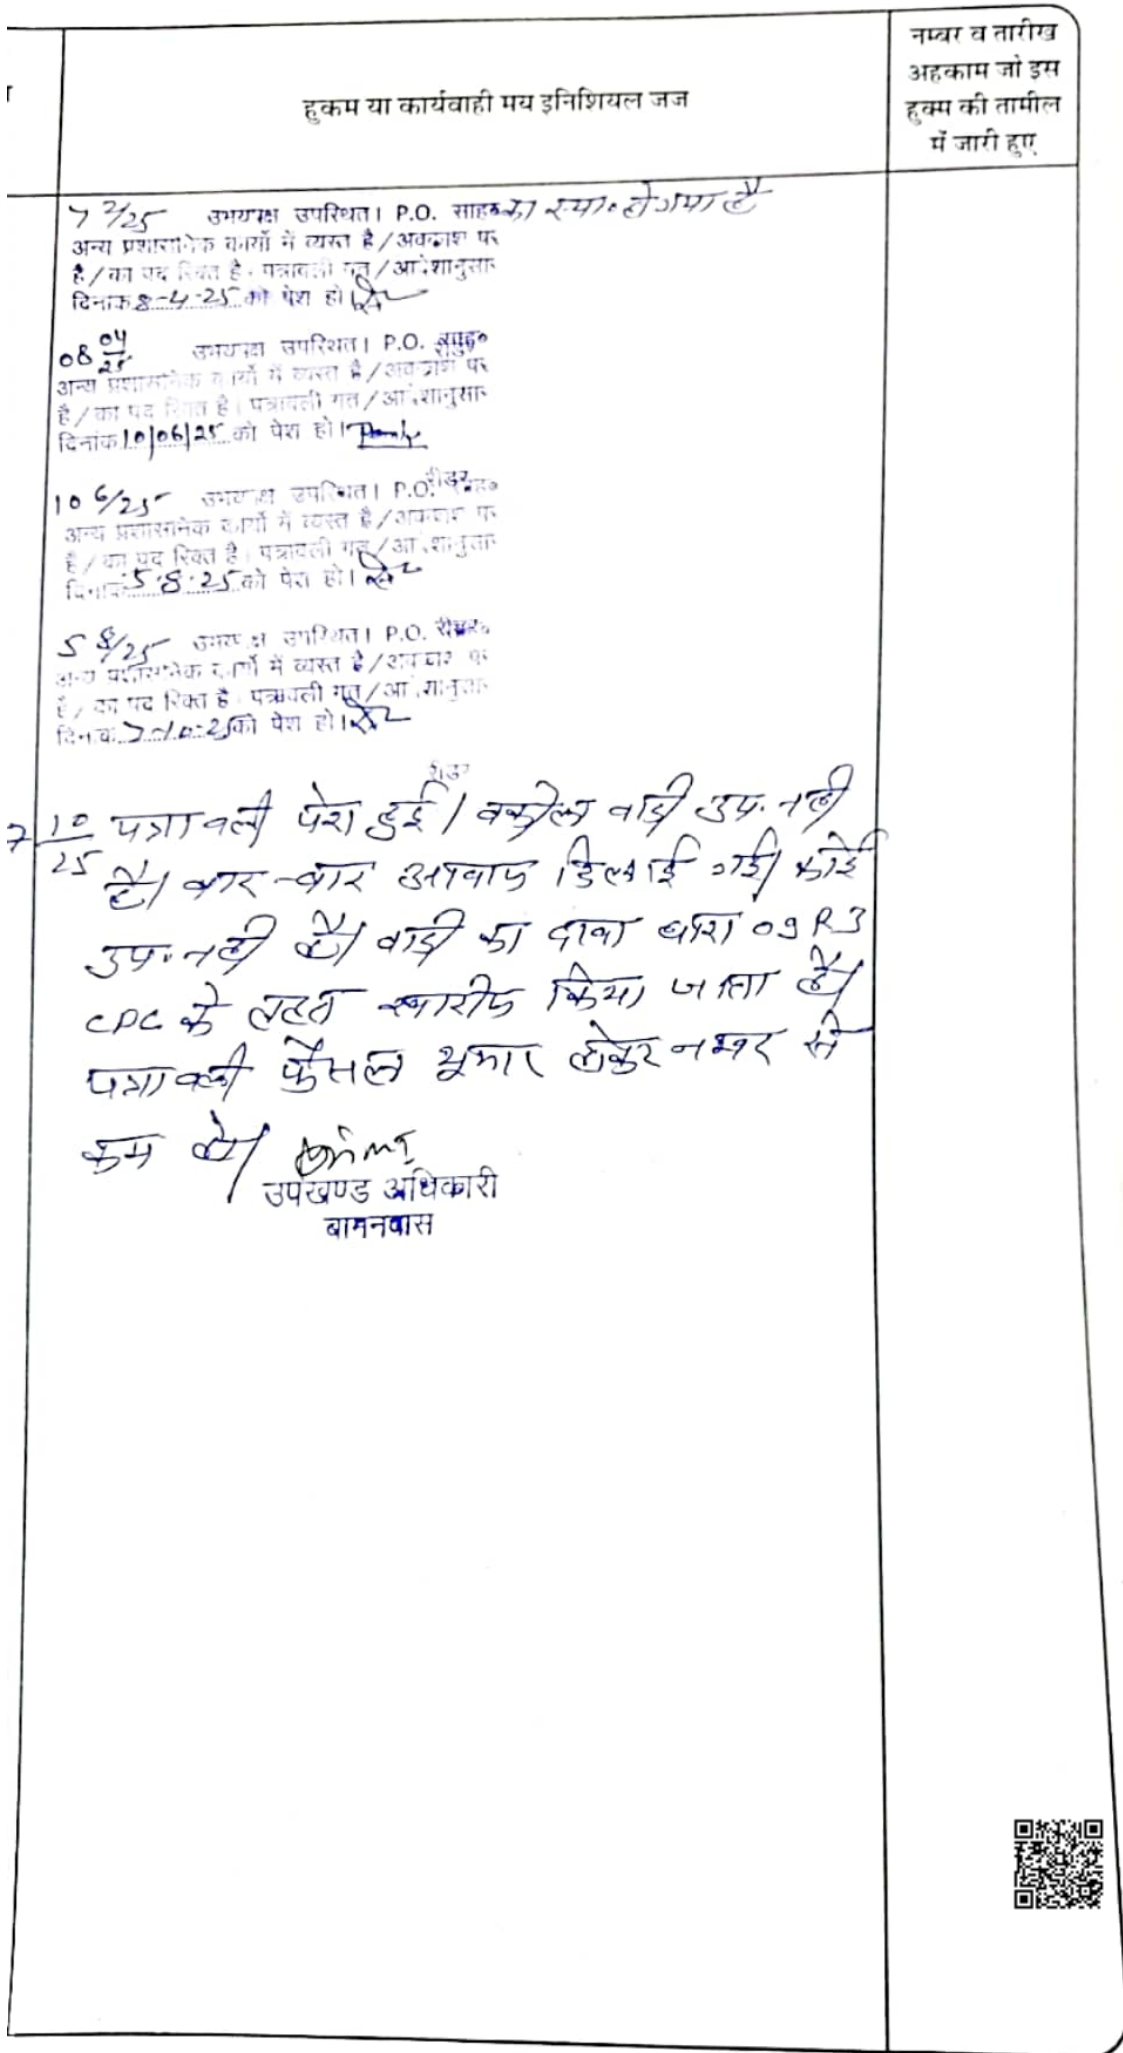 हुकम या कार्यवाही मय इनिशियल जज
नम्बर व तारीख
अहकाम जो इस
हुक्म की तामील
में जारी हुए
7 2/25 उभयपक्ष उपस्थित। P.O. साहब का स्था० हो गया है
अन्य प्रशासनिक कार्यो में व्यस्त है/अवकाश पर
है/का पद रिक्त है। पत्रावली गत/आदेशानुसार
दिनांक 8-4-25 को पेश हो।
08 04/25 उभयपक्ष उपस्थित। P.O.
अन्य प्रशासनिक कार्यो में व्यस्त है/अवकाश पर
है/का पद रिक्त है। पत्रावली गत/आदेशानुसार
दिनांक 10/06/25 को पेश हो।
रीडर
10 6/25 उभयपक्ष उपस्थित। P.O.
अन्य प्रशासनिक कार्यो में व्यस्त है/अवकाश पर
है/का पद रिक्त है। पत्रावली गत/आदेशानुसार
दिनांक 5.8.25 को पेश हो।
5 8/25 उभयपक्ष उपस्थित। P.O.
अन्य प्रशासनिक कार्यो में व्यस्त है/अवकाश पर
है/का पद रिक्त है। पत्रावली गत/आदेशानुसार
दिनांक 7-10-25 को पेश हो।
रीडर
7 10/25 पत्रावली पेश हुई। वकील वादी उप. नही
है। बार-बार आवाज दिलाई गई। कोई
उप. नही है। वादी का दावा धारा 09 R3
CPC के तहत खारीज किया जाता है।
पत्रावली फैसल शुमार होकर नम्बर से
कम हो।
उपखण्ड अधिकारी
बामनवास